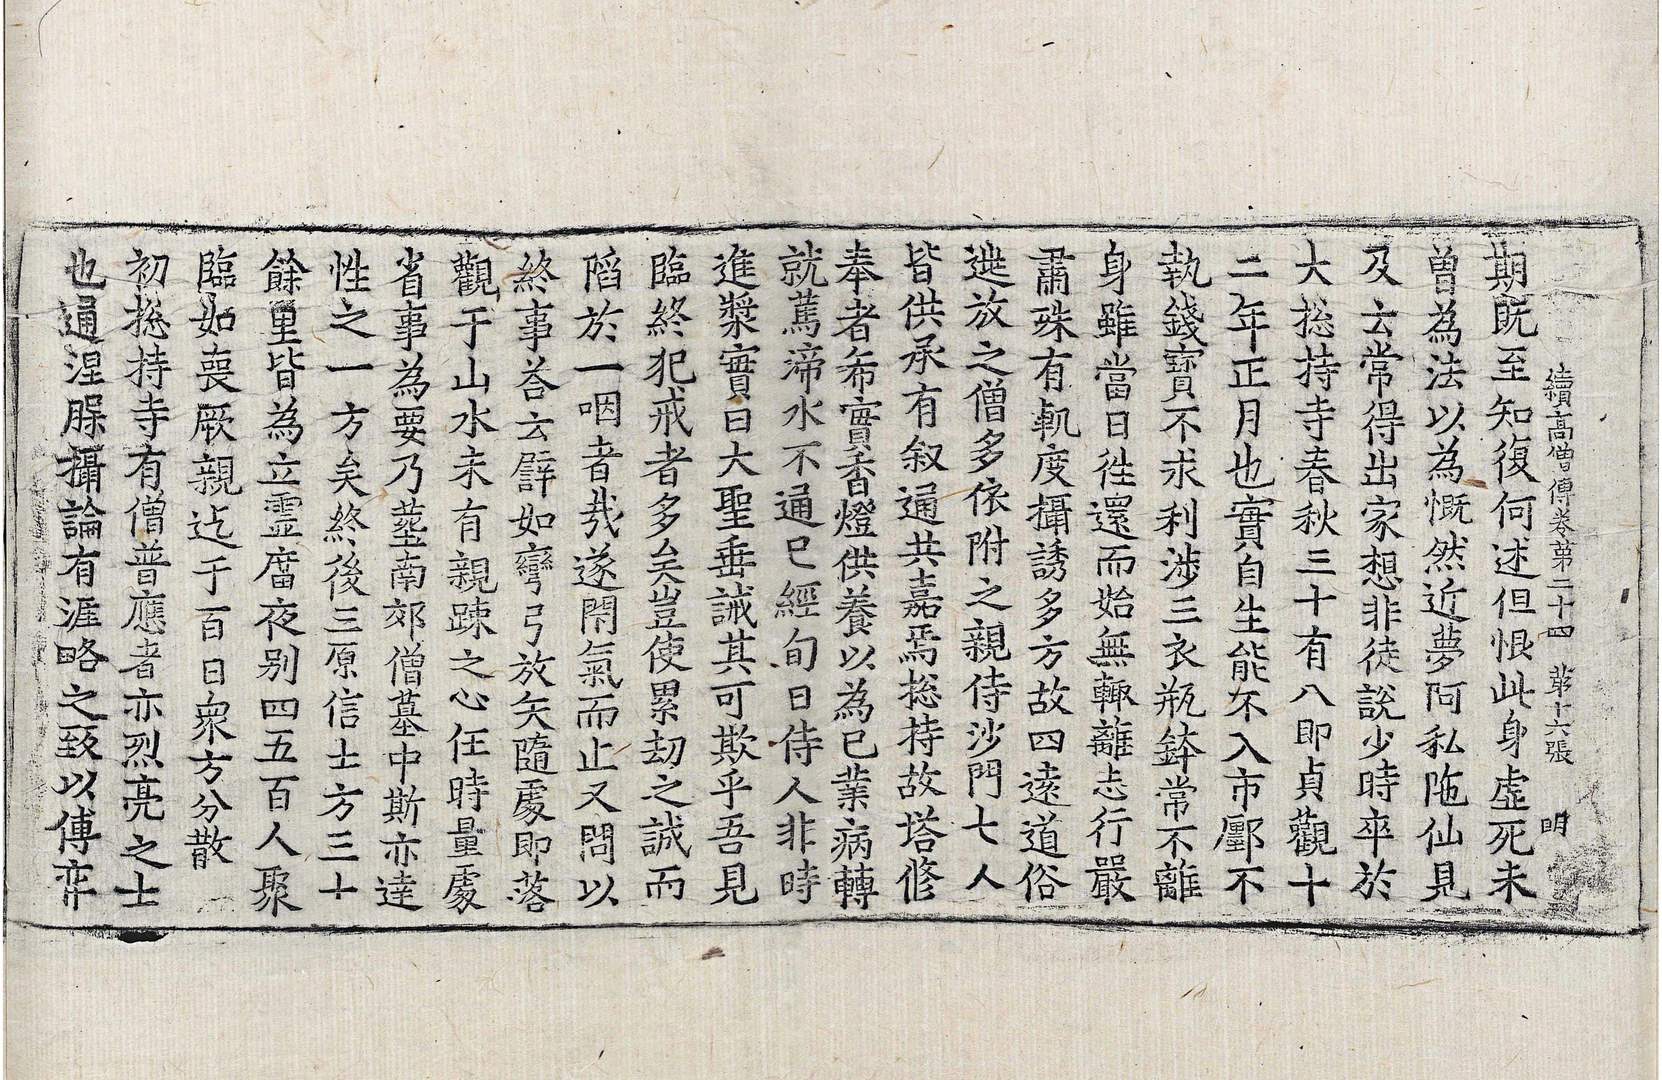 續高僧傳卷第二十四 苐十六張 明
期旣至知復何述但恨此身虛死未
曽為法以為慨然近夢阿私陁仙見
及云常得出家想非徒說少時卒於
大捴持寺春秋三十有八即貞觀十
二年正月也實自生能不入市鄽不
執錢寶不求利涉三衣瓶鉢常不離
身雖當日徃還而始無輙離志行嚴
肅殊有軌度攝誘多方故四遠道俗
遊放之僧多依附之親侍沙門七人
皆供承有叙通共嘉焉捴持故塔修
奉者希實香燈供養以為已業病轉
就蔫渧水不通已經旬日侍人非時
進漿實曰大聖垂誡其可欺乎吾見
臨終犯戒者多矣豈使累劫之誡而
䧟於一咽者㦲遂閇氣而止又問以
終事荅云譬如彎弓放矢隨處即落
觀于山水未有親踈之心任時量處
省事為要乃塟南郊僧墓中斯亦達
性之一方矣終後三原信士方三十
餘里皆為立靈廗夜别四五百人聚
臨如喪厥親迄于百日衆方分散
初捴持寺有僧普應者亦烈亮之士
也通涅槃攝論有涯略之致以傅弈